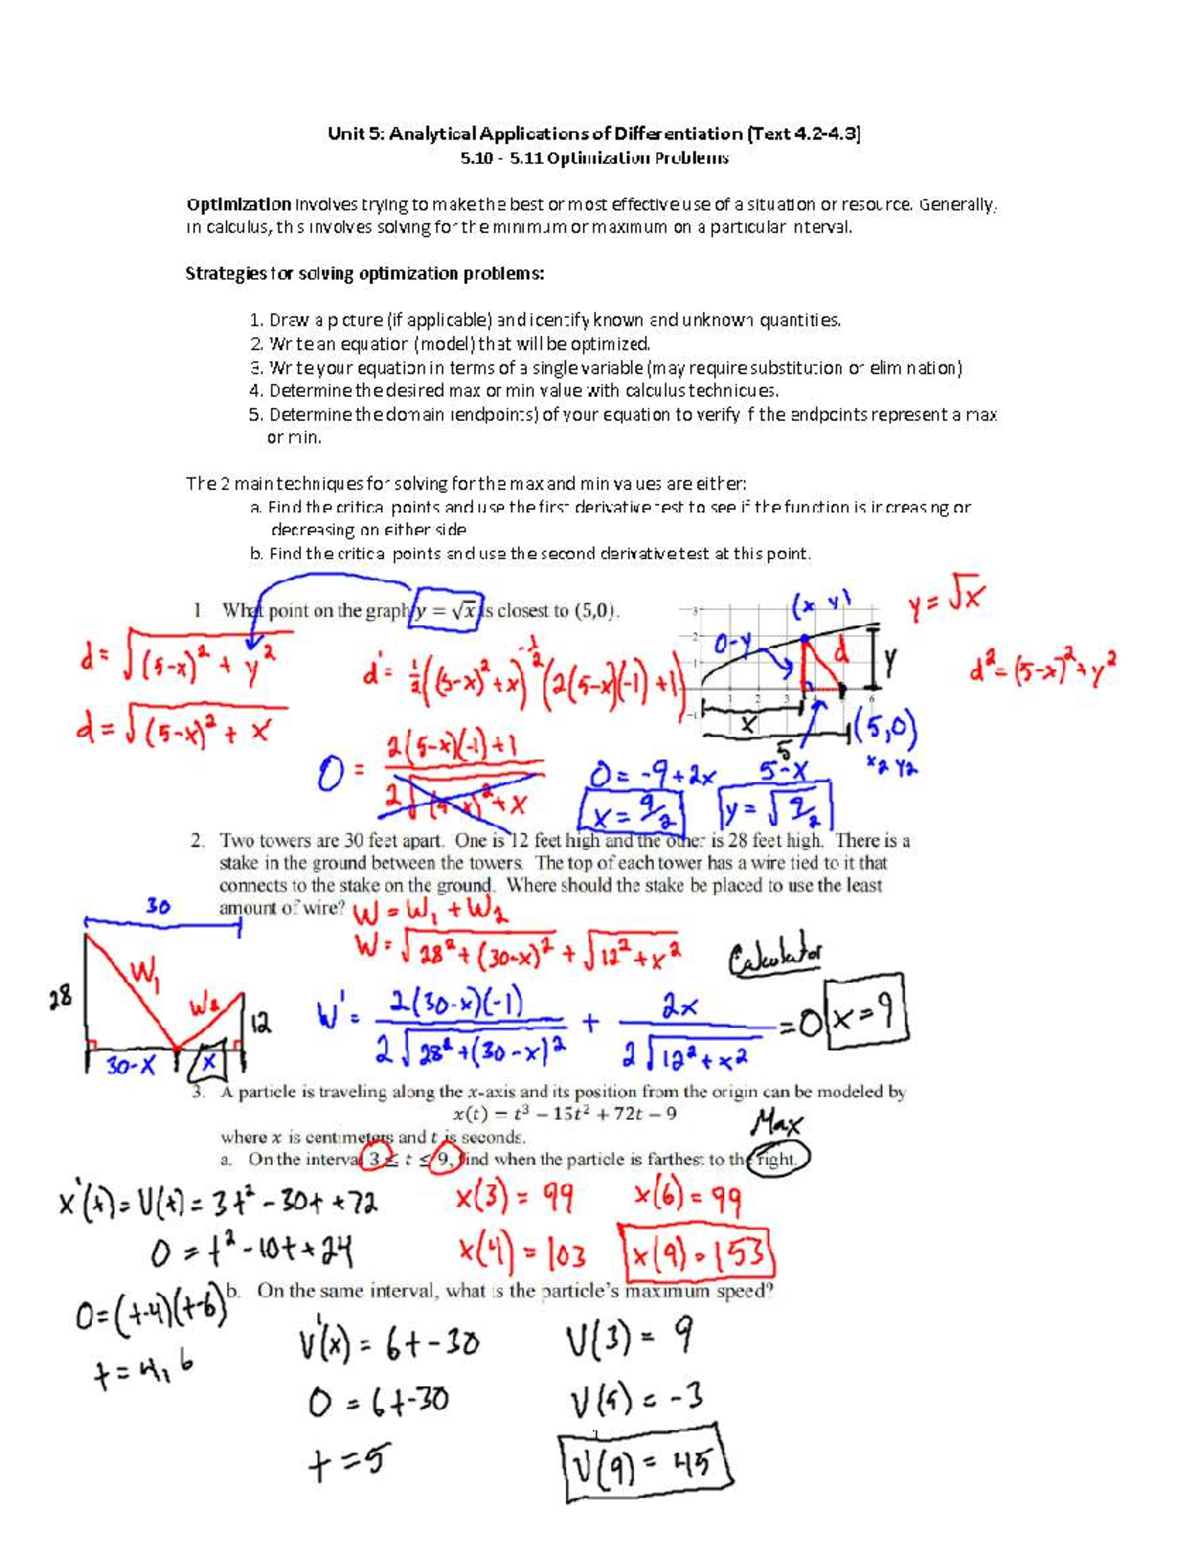 Unit 5: Analytical Applications of Differentiation (Text 4.2-4.3)
5.10 - 5.11 Optimization Problems
Optimization involves trying to make the best or most effective use of a situation or resource. Generally,
in calculus, this involves solving for the minimum or maximum on a particular interval.
Strategies for solving optimization problems:
1. Draw a picture (if applicable) and identify known and unknown quantities.
2. Write an equation (model) that will be optimized.
3. Write your equation in terms of a single variable (may require substitution or elimination)
4. Determine the desired max or min value with calculus techniques.
5. Determine the domain (endpoints) of your equation to verify if the endpoints represent a max
or min.
The 2 main techniques for solving for the max and min values are either:
a. Find the critical points and use the first derivative test to see if the function is increasing or
decreasing on either side
b. Find the critical points and use the second derivative test at this point.
1 What point on the graph y = √x is closest to (5,0).
d = √((5-x)² + y²)
d = √((5-x)² + x)
d' = 1/2((5-x)² + x)^(-1/2) (2(5-x)(-1) + 1)
0 = (2(5-x)(-1) + 1) / (2√((5-x)² + x))
0 = -9 + 2x
x = 9/2
y = √(9/2)
3
2
1
-1
1 2 3 6
(x, y)
0-y
d
y
x
5
5-x
(5,0)
x2 y2
y = √x
d² = (5-x)² + y²
2. Two towers are 30 feet apart. One is 12 feet high and the other is 28 feet high. There is a
stake in the ground between the towers. The top of each tower has a wire tied to it that
connects to the stake on the ground. Where should the stake be placed to use the least
amount of wire?
W = W1 + W2
W = √(28² + (30-x)²) + √(12² + x²)
Calculator
W' = 2(30-x)(-1) / (2√(28² + (30-x)²)) + 2x / (2√(12² + x²)) = 0
x = 9
30
28
W1
W2
12
30-x
x
3. A particle is traveling along the x-axis and its position from the origin can be modeled by
x(t) = t³ − 15t² + 72t − 9
where x is centimeters and t is seconds.
Max
a. On the interval 3 ≤ t ≤ 9, find when the particle is farthest to the right.
x'(t) = V(t) = 3t² - 30t + 72
0 = t² - 10t + 24
0 = (t-4)(t-6)
t = 4, 6
x(3) = 99
x(6) = 99
x(4) = 103
x(9) = 153
b. On the same interval, what is the particle's maximum speed?
V'(x) = 6t - 30
0 = 6t - 30
t = 5
V(3) = 9
V(5) = -3
V(9) = 45